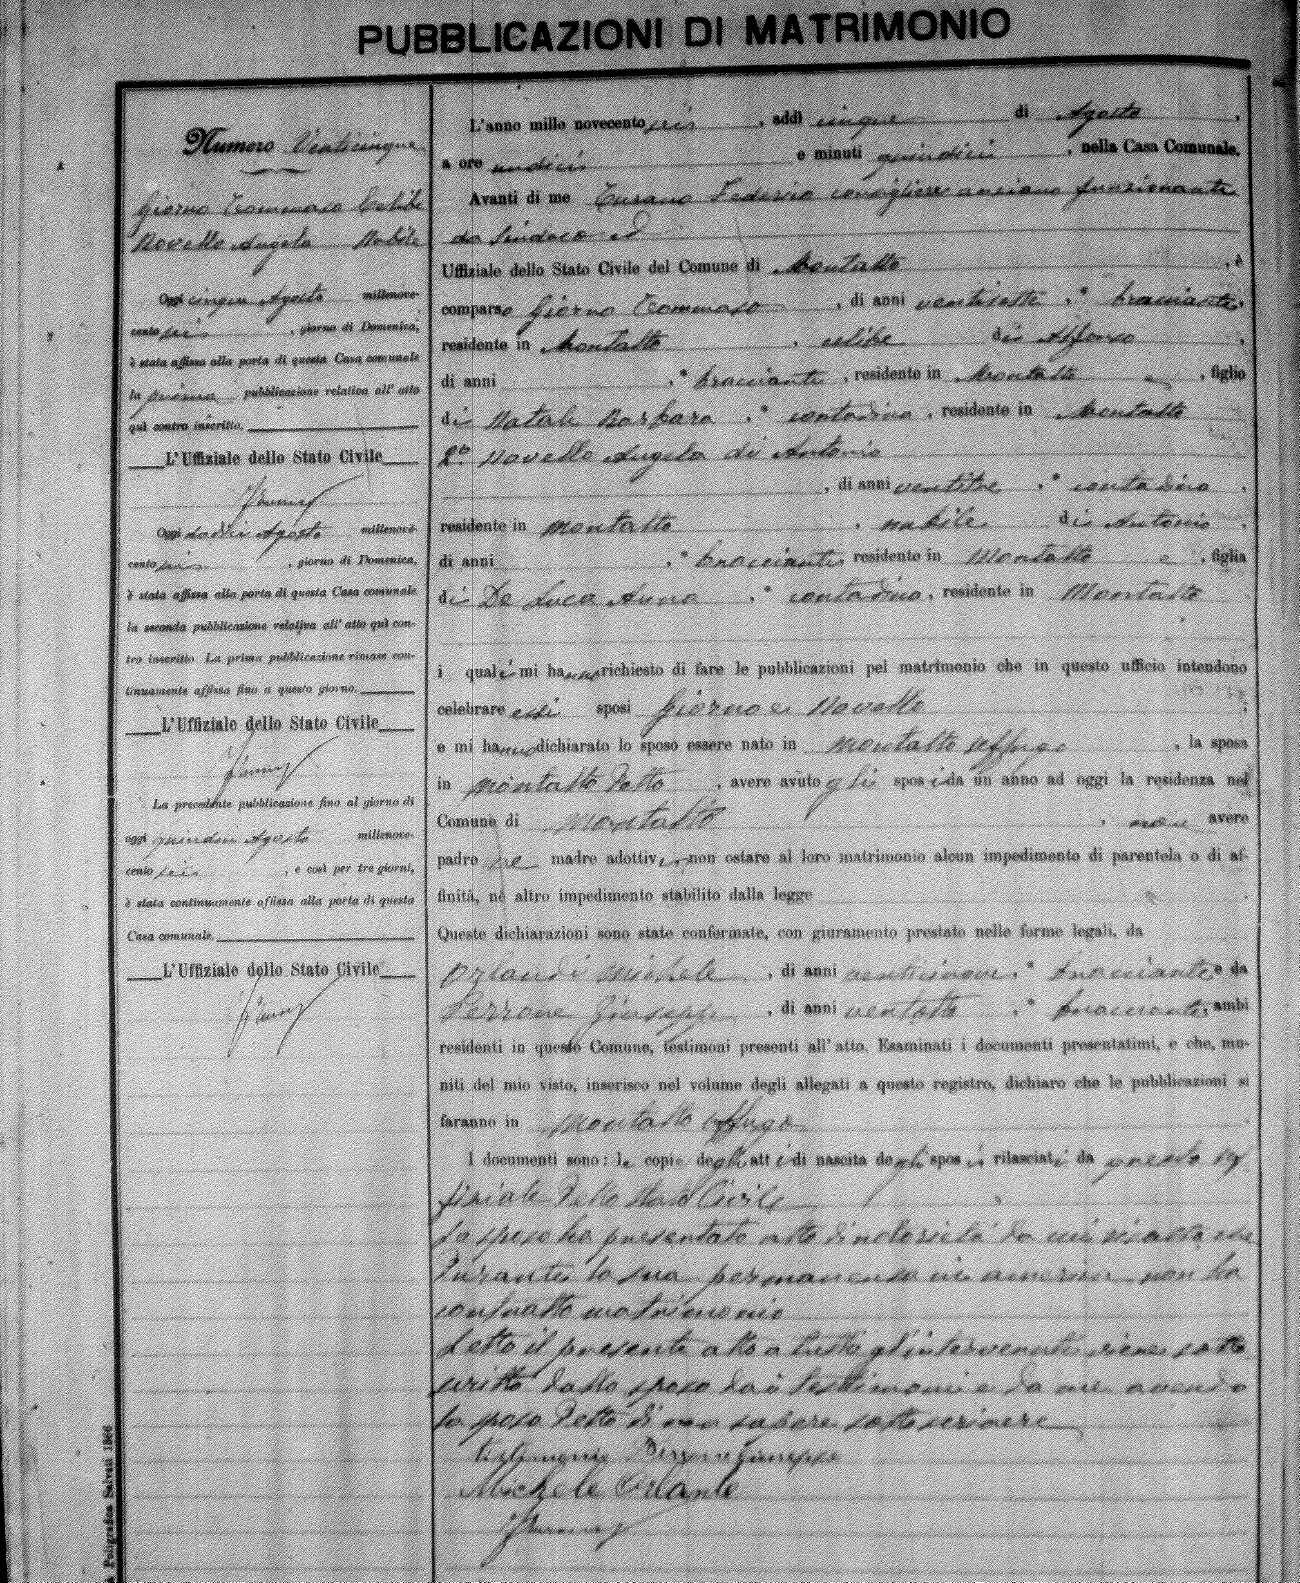 PUBBLICAZIONI DI MATRIMONIO
Numero Venticinque
Giorno Tommaso Celibe
Novello Angela Nubile
Oggi cinque Agosto millenove-
cento sei , giorno di Domenica,
è stata affissa alla porta di questa Casa comunale
la prima pubblicazione relativa all' atto
quì contro inscritto.
L'Uffiziale dello Stato Civile
Oggi dodici Agosto millenove-
cento sei , giorno di Domenica,
è stata affissa alla porta di questa Casa comunale
la seconda pubblicazione relativa all' atto quì con-
tro inscritto. La prima pubblicazione rimase con-
tinuamente affissa fino a questo giorno.
L'Uffiziale dello Stato Civile
La precedente pubblicazione fino al giorno di
oggi quindici Agosto millenove-
cento sei , e così per tre giorni,
è stata continuamente affissa alla porta di questa
Casa comunale.
L'Uffiziale dello Stato Civile
L'anno mille novecento sei , addì cinque di Agosto ,
a ore undici e minuti quindici , nella Casa Comunale.
Avanti di me Turano Federico consigliere anziano funzionante
da Sindaco
Uffiziale dello Stato Civile del Comune di Montalto , è
comparso Giorno Tommaso , di anni ventisette , bracciante,
residente in Montalto , celibe di Alfonso ,
di anni , bracciante , residente in Montalto e , figlio
di Natale Barbara , contadina , residente in Montalto
2° Novello Angela di Antonio
, di anni ventitre , contadina ,
residente in Montalto , nubile di Antonio ,
di anni , bracciante, residente in Montalto e , figlia
di De Luca Anna , contadina , residente in Montalto
i quali mi hanno richiesto di fare le pubblicazioni pel matrimonio che in questo ufficio intendono
celebrare essi sposi Giorno e Novello ;
e mi hanno dichiarato lo sposo essere nato in Montalto Uffugo , la sposa
in Montalto detto , avere avuto gli sposi da un anno ad oggi la residenza nel
Comune di Montalto , non avere
padre ne madre adottivi, non ostare al loro matrimonio alcun impedimento di parentela o di af-
finità, nè altro impedimento stabilito dalla legge .
Queste dichiarazioni sono state confermate, con giuramento prestato nelle forme legali, da
Orlandi Michele , di anni venticinque , bracciante e da
Perrone Giuseppe , di anni ventotto , bracciante, ambi
residenti in questo Comune, testimoni presenti all' atto. Esaminati i documenti presentatimi, e che, mu-
niti del mio visto, inserisco nel volume degli allegati a questo registro, dichiaro che le pubblicazioni si
faranno in Montalto Uffugo .
I documenti sono: le copie degli atti di nascita degli sposi rilasciati da questo uf
fiziale dello stato Civile
Lo sposo ha presentato atto di notorietà da cui risulta che
durante la sua permanenza in america non ha
contratto matrimonio
Letto il presente atto a tutti gl'intervenuti viene sotto
scritto dallo sposo dai testimoni e da me avendo
la sposa detto di non sapere sottoscrivere
Perrone Giuseppe
Michele Orlando
Poligrafica Salvati 1866